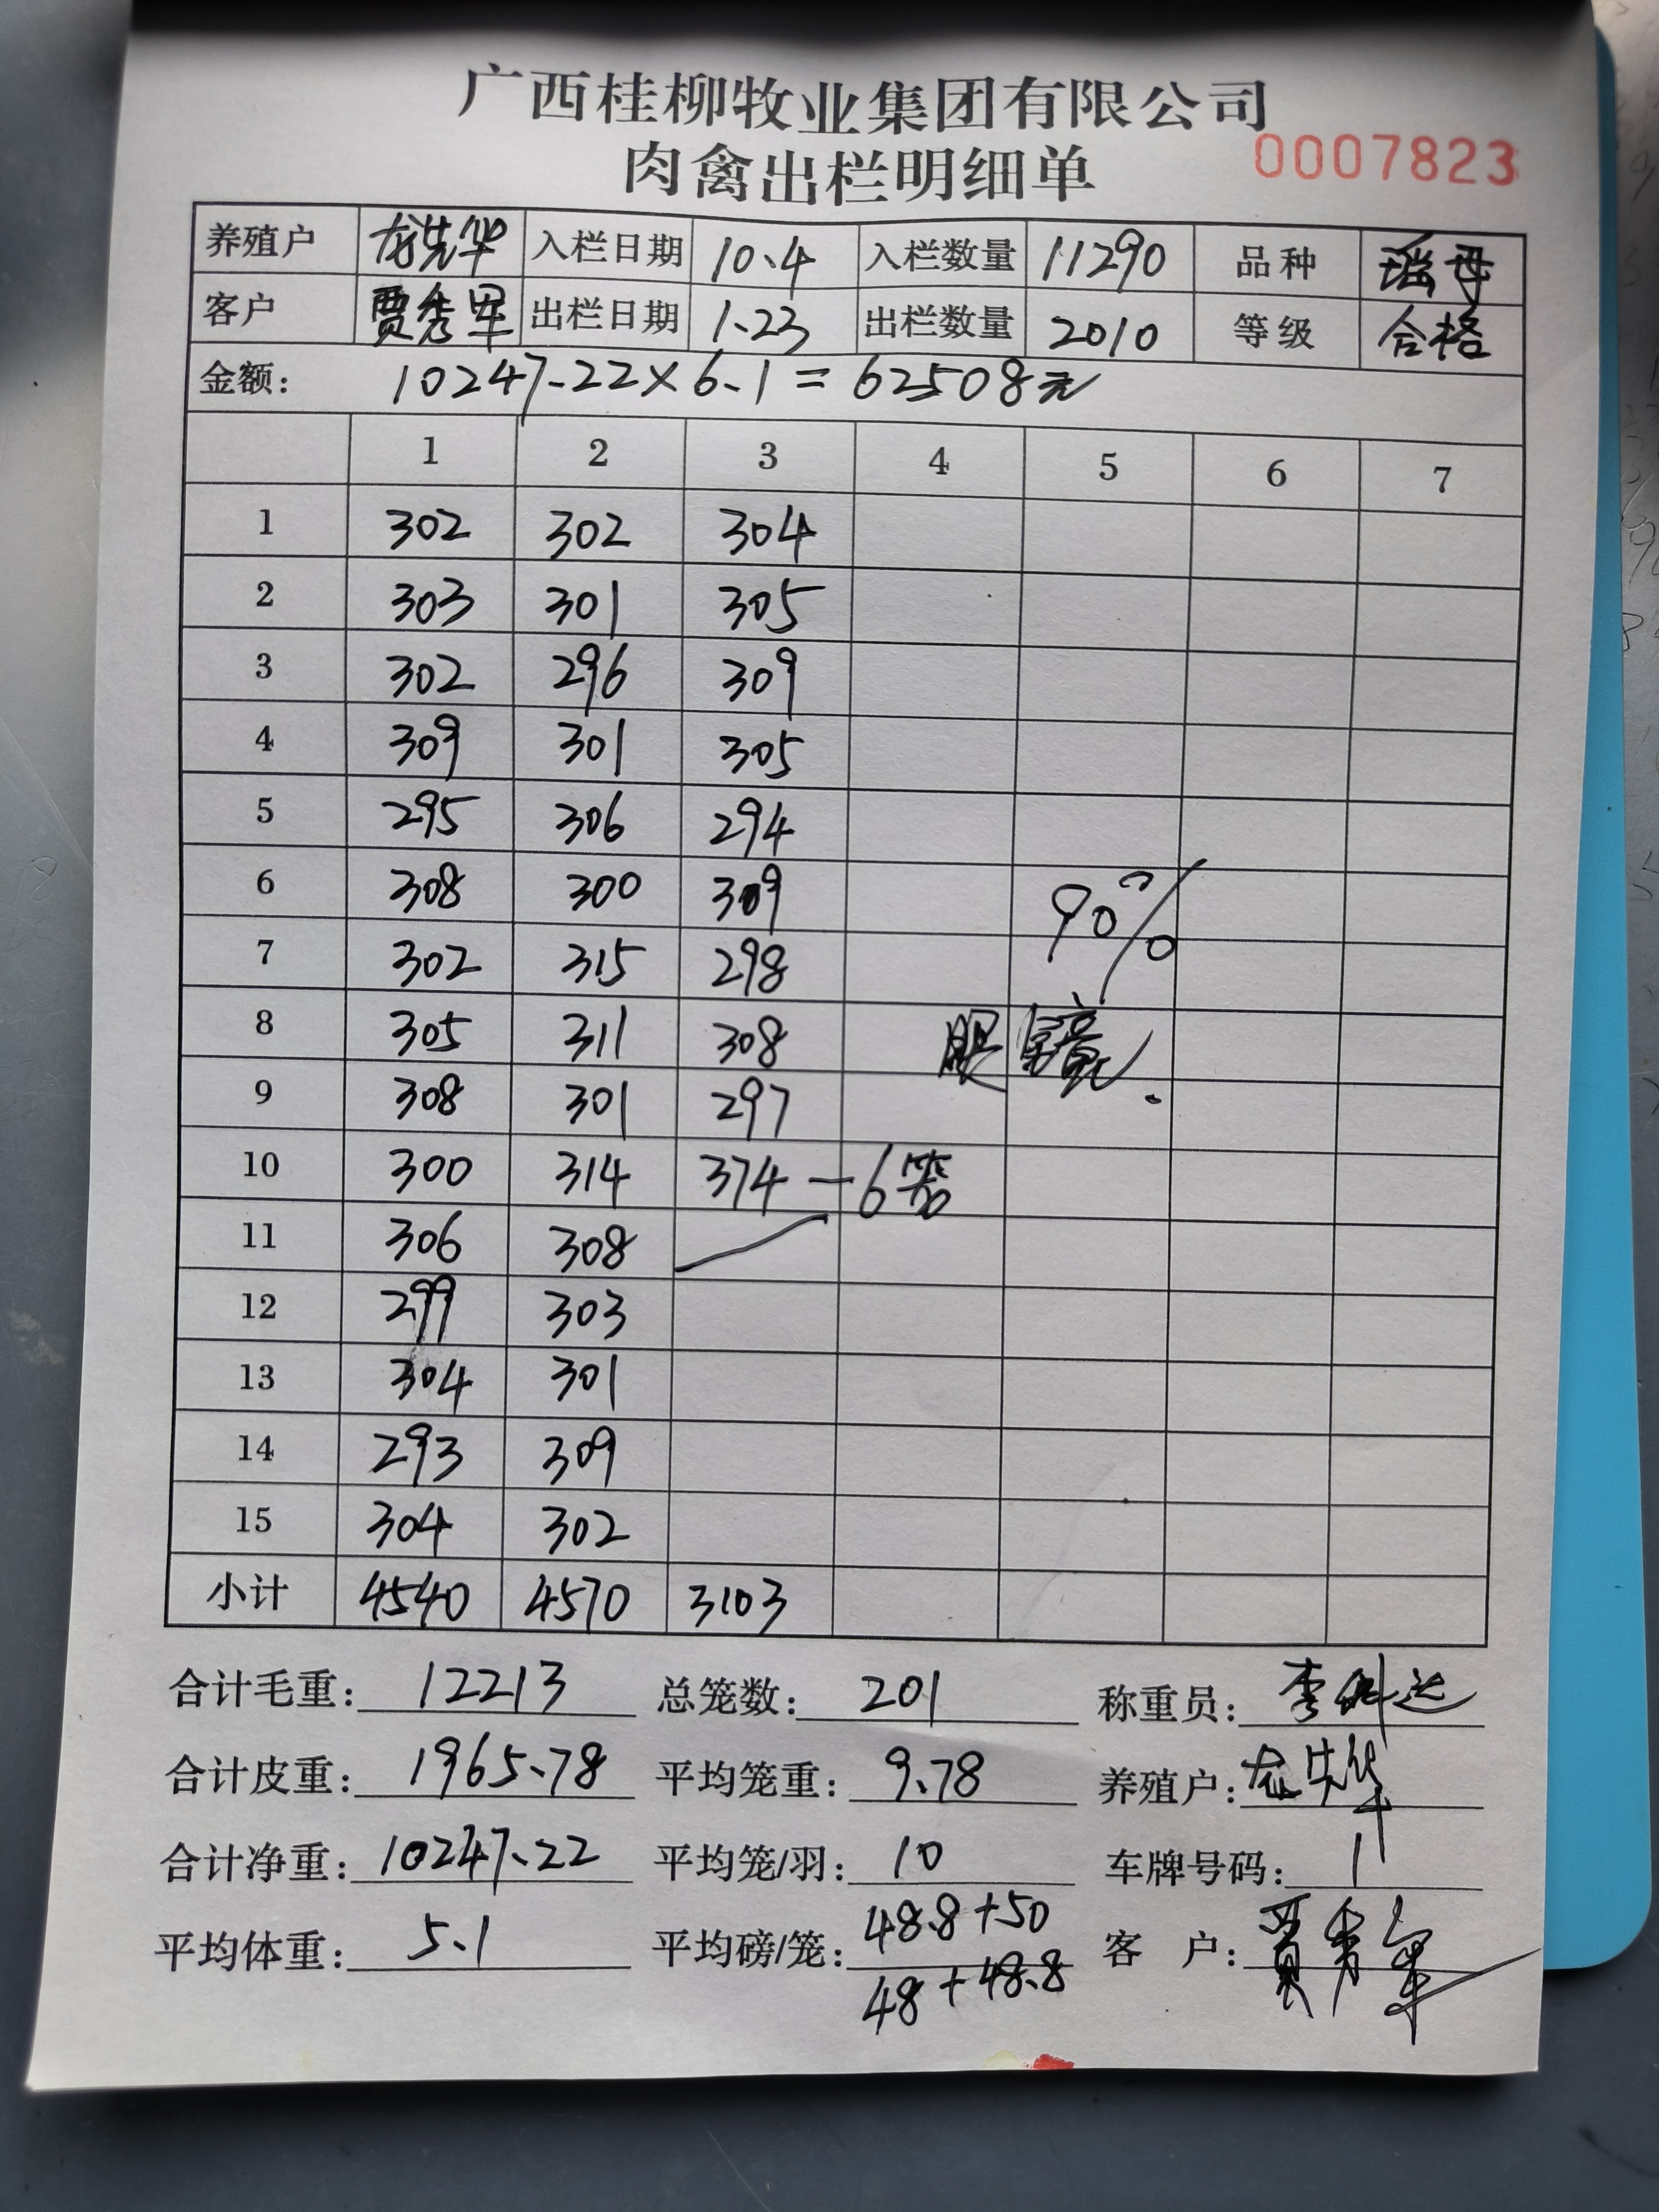 广西桂柳牧业集团有限公司
肉禽出栏明细单 0007823
养殖户 龙先华 入栏日期 10.4 入栏数量 11290 品种 瑶母
客户 贾秀军 出栏日期 1.23 出栏数量 2010 等级 合格
金额: 10247.22×6.1=62508元
1 2 3 4 5 6 7
1 302 302 304
2 303 301 305
3 302 296 309
4 309 301 305
5 295 306 294
6 308 300 309 90%
7 302 315 298
8 305 311 308 眼镜.
9 308 301 297
10 300 314 374 — 6笼
11 306 308
12 299 303
13 304 301
14 293 309
15 304 302
小计 4540 4570 3103
合计毛重: 12213 总笼数: 201 称重员: 李
合计皮重: 1965.78 平均笼重: 9.78 养殖户: 龙先华
合计净重: 10247.22 平均笼/羽: 10 车牌号码: 1
平均体重: 5.1 平均磅/笼: 48.8+50 客 户: 贾秀军
48+48.8